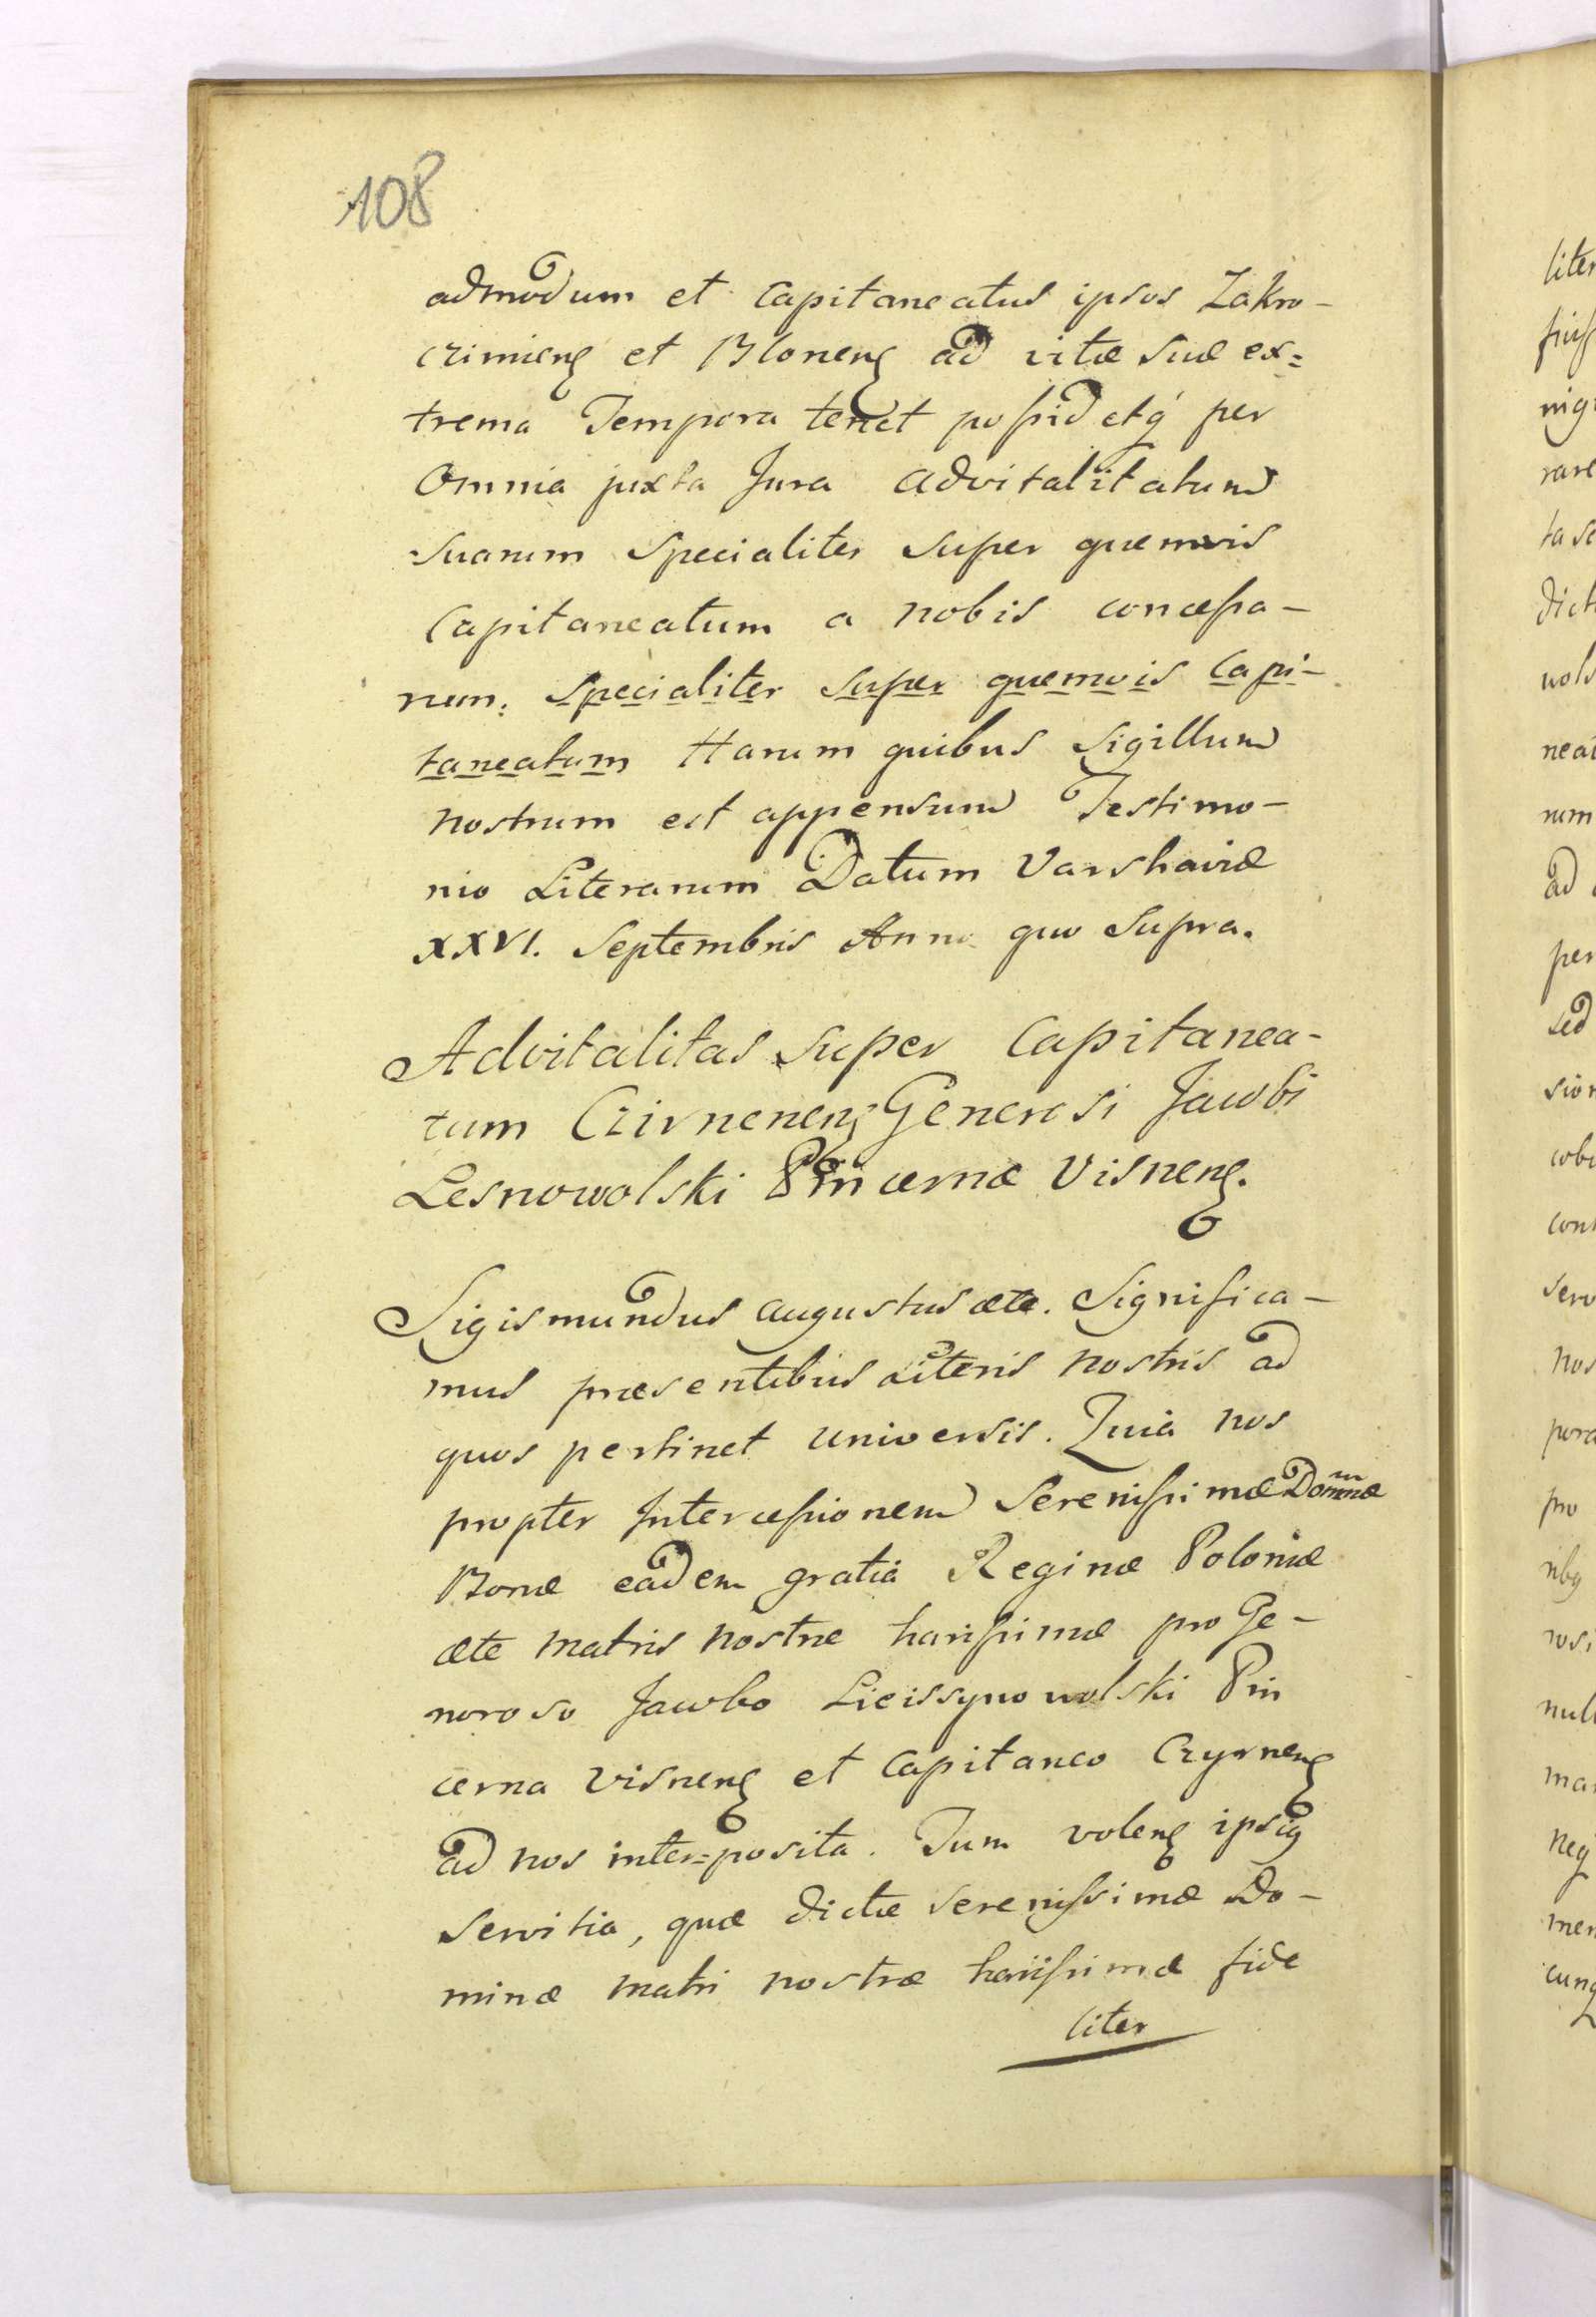 108
admodum et Capitaneatus ipsos Zakro-
czimieng et Bloneng ad vitæ suæ ex=
trema Tempora tenet possidetq́ per
Omnia juxta Jura Advitalitatum
suarum Specialiter super quemvis
Capitaneatum a nobis concessa-
rum. Specialiter super quemvis Capi-
taneatum Harum quibus Sigillum
nostrum est appensum Testimo-
nio Literarum Datum Varshaviæ
XXVI. Septembris Anno quo Supra.
Advitalitas super Capitanea-
tum Czirneneng Generosi Jacobi
Lesnowolski Pincernæ Visneng.
Sigismundus Augustus ætc. Significa-
mus præsentibus Literis nostris ad
quos pertinet universis. Quia nos
propter Intercessionem Serenissimæ Domnæ
Bonæ eadem gratia Reginæ Poloniæ
ætc Matris nostræ harissimæ pro Ge-
noroso Jacobo Lieissynowolski Pin
cerna Visneng et Capitaneo Czyrneng
ad nos inter=posita. Tum voleng ipsig
Servitia, quæ dictæ serenissimæ Do-
minæ Matri nostræ harissimæ fide
liter
liter
nigr
rare
ta se
dict
wols
neat
rum
ad
per
sed
sion
cobi
cont
serv
nos
pora
pro
ribg
rosi
null
man
neq
men
cunq